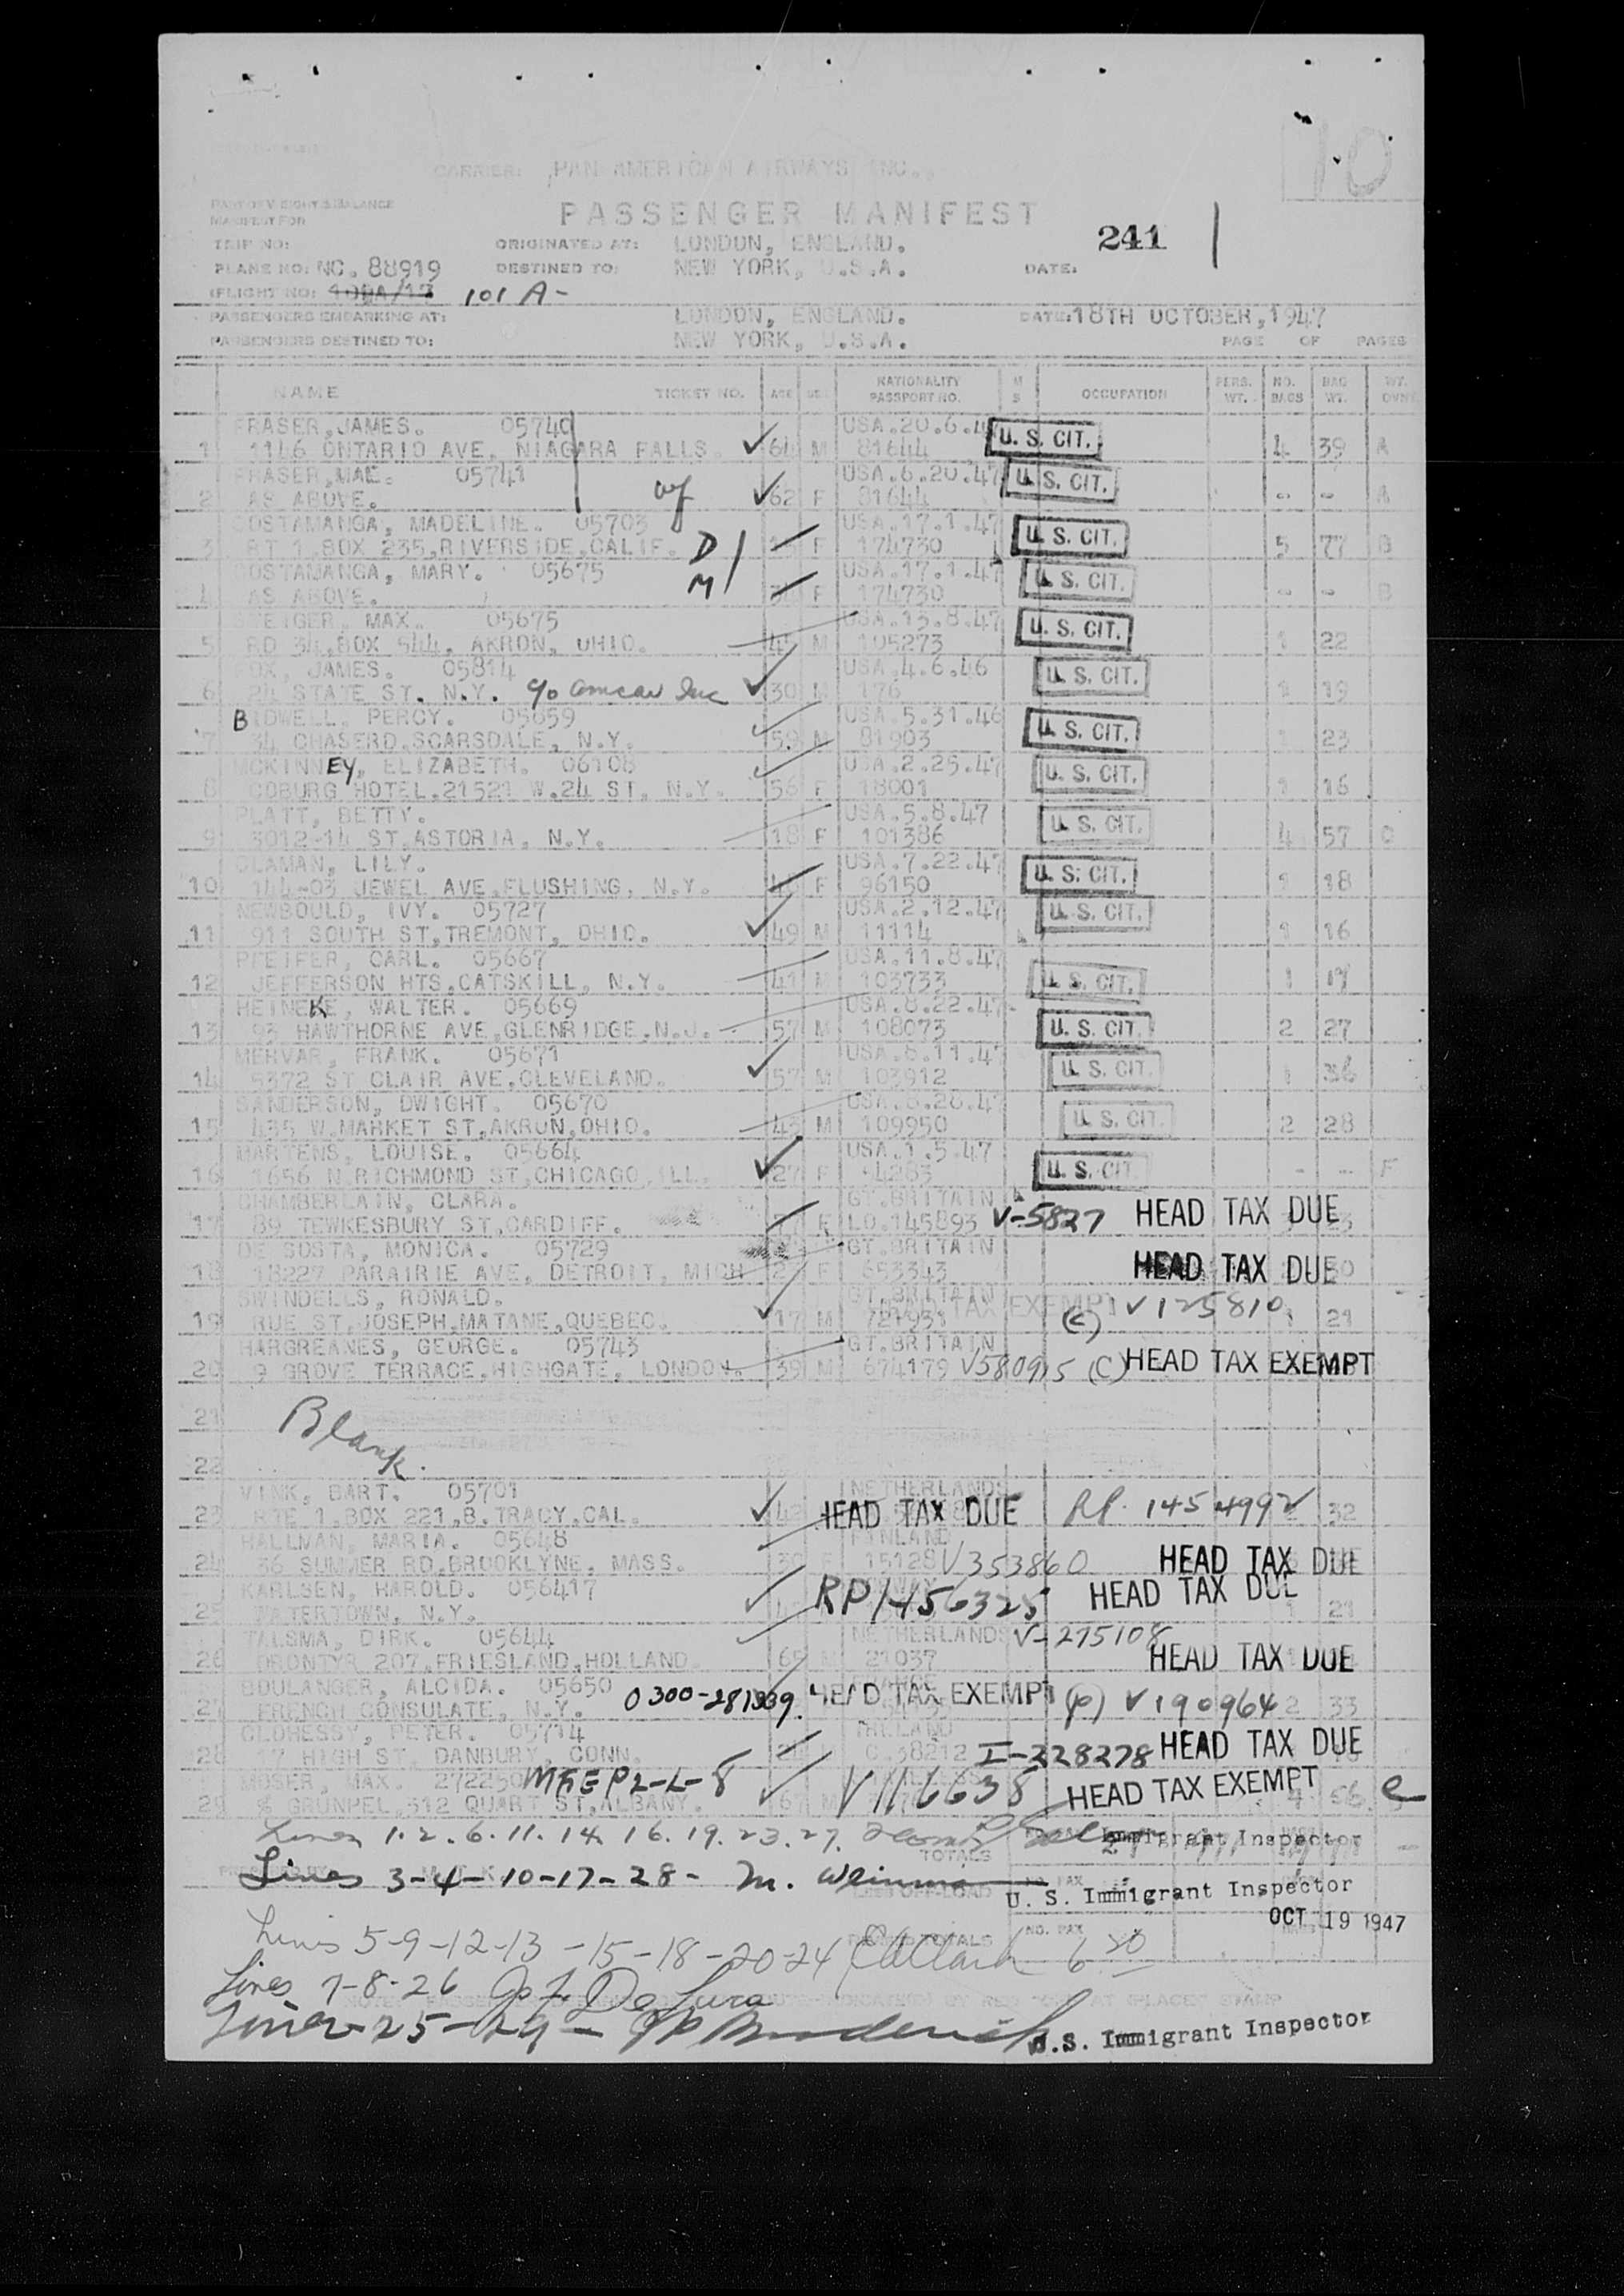 10
CARRIER: PAN AMERICAN AIRWAYS INC.
PART OF WEIGHT & BALANCE
MANIFEST FOR
PASSENGER MANIFEST
241
TRIP NO: ORIGINATED AT: LONDON, ENGLAND.
PLANE NO: NC. 88919 DESTINED TO: NEW YORK, U.S.A. DATE:
FLIGHT NO: 101 A-
PASSENGERS EMBARKING AT: LONDON, ENGLAND. DATE: 18TH OCTOBER, 1947
PASSENGERS DESTINED TO: NEW YORK, U.S.A. PAGE OF PAGES
NAME TICKET NO. AGE SEX NATIONALITY PASSPORT NO. M S OCCUPATION PERS. WT. NO. BAGS BAG WT. WT. OVNT
FRASER, JAMES. 05740 USA.20.6.47 U. S. CIT.
1 1146 ONTARIO AVE, NIAGARA FALLS. 64 M 81644 4 39 A
FRASER, MAE. 05741 wf USA.6.20.47 U. S. CIT.
2 AS ABOVE. 62 F 81644 - - A
COSTAMANGA, MADELINE. 05703 USA.17.1.47 U. S. CIT.
3 RT 1, BOX 235, RIVERSIDE, CALIF. D F 174730 5 77 B
COSTAMANGA, MARY. 05675 USA.17.1.47 U. S. CIT.
4 AS ABOVE. M F 174730 - - B
MAX. 05675 USA.13.8.47 U. S. CIT.
5 RD 34, BOX 544, AKRON, OHIO. 45 M 105273 1 22
FOX, JAMES. 05814 USA.4.6.46 U. S. CIT.
6 24 STATE ST. N.Y. c/o Amcav Inc 30 M 176 1 19
BIDWELL, PERCY. 05659 USA.5.31.46 U. S. CIT.
7 34 CHASERD, SCARSDALE, N.Y. 59 M 81903 1 23
MCKINNEY, ELIZABETH. 06108 USA.2.25.47 U. S. CIT.
8 COBURG HOTEL, 21521 W.24 ST. N.Y. 56 F 18001 1 16
PLATT, BETTY. USA.5.8.47 U. S. CIT.
9 3012-14 ST, ASTORIA, N.Y. 18 F 101386 4 57
CLAMAN, LILY. USA.7.22.47 U. S. CIT.
10 144-03 JEWEL AVE, FLUSHING, N.Y. F 96150 1 18
NEWBOULD, IVY. 05727 USA.2.12.47 U. S. CIT.
11 911 SOUTH ST, TREMONT, OHIO. 49 M 11114 1 16
PFEIFER, CARL. 05667 USA.11.8.47
12 JEFFERSON HTS, CATSKILL, N.Y. 41 M 103733 U. S. CIT. 1 19
HEINEKE, WALTER. 05669 USA.8.22.47
13 93 HAWTHORNE AVE, GLENRIDGE, N.J. 57 M 108073 U. S. CIT. 2 27
MERVAR, FRANK. 05671 USA.8.11.47 U. S. CIT.
14 5372 ST CLAIR AVE, CLEVELAND. 57 M 103912 1 36
SANDERSON, DWIGHT. 05670 USA.8.28.47
15 435 W.MARKET ST, AKRON, OHIO. 43 M 109950 U. S. CIT. 2 28
MARTENS, LOUISE. 05664 USA.1.5.47
16 1656 N RICHMOND ST, CHICAGO, ILL. 27 F 4283 U. S. CIT. - - F
CHAMBERLAIN, CLARA. GT.BRITAIN
17 89 TEWKESBURY ST, CARDIFF. F LO.145893 V-5827 HEAD TAX DUE
DE COSTA, MONICA. 05729 GT.BRITAIN
18 18227 PARAIRIE AVE, DETROIT, MICH F 653343 HEAD TAX DUE
SWINDELLS, RONALD. GT.BRITAIN
19 RUE ST, JOSEPH, MATANE, QUEBEC. 17 M TAX EXEMPT (C) V125810 21
HARGREANES, GEORGE. 05743 GT.BRITAIN
20 9 GROVE TERRACE, HIGHGATE, LONDON. 39 M 674179 V580915 (C) HEAD TAX EXEMPT
21 Blank
22
VINK, BART. 05701 NETHERLANDS
23 RTE 1, BOX 221, B, TRACY, CAL. 42 HEAD TAX DUE RP. 1454992 32
HALLMAN, MARIA. 05648 FINLAND
24 36 SUMMER RD, BROOKLYNE, MASS. 30 F 15128 V353860 HEAD TAX DUE
KARLSEN, HAROLD. 056417
25 WATERTOWN, N.Y. RP1456325 HEAD TAX DUE 21
TALSMA, DIRK. 05644 NETHERLANDS V-275108
26 DRONTYR 207, FRIESLAND, HOLLAND. M 21037 HEAD TAX DUE
BOULANGER, ALCIDA. 05650
27 FRENCH CONSULATE, N.Y. 0300-281339 HEAD TAX EXEMPT V190964 2 33
CLOHESSY, PETER. 05714 IRELAND
28 17 HIGH ST, DANBURY, CONN. C.38212 I-228278 HEAD TAX DUE
MOSER, MAX. 272250
29 % GRUNPEL, 312 QUART ST, ALBANY. 67 M V116638 HEAD TAX EXEMPT 4 56
Lines 1.2.6.11.14.16.19.23.27. Immigrant Inspector
TOTALS
Lines 3-4-10-17-28- M. Weinman U. S. Immigrant Inspector
OCT 19 1947
Lines 5-9-12-13-15-18-20-24 Clark NO. PAX
Lines 7-8-26 De Luca
Lines 25-29- U.S. Immigrant Inspector